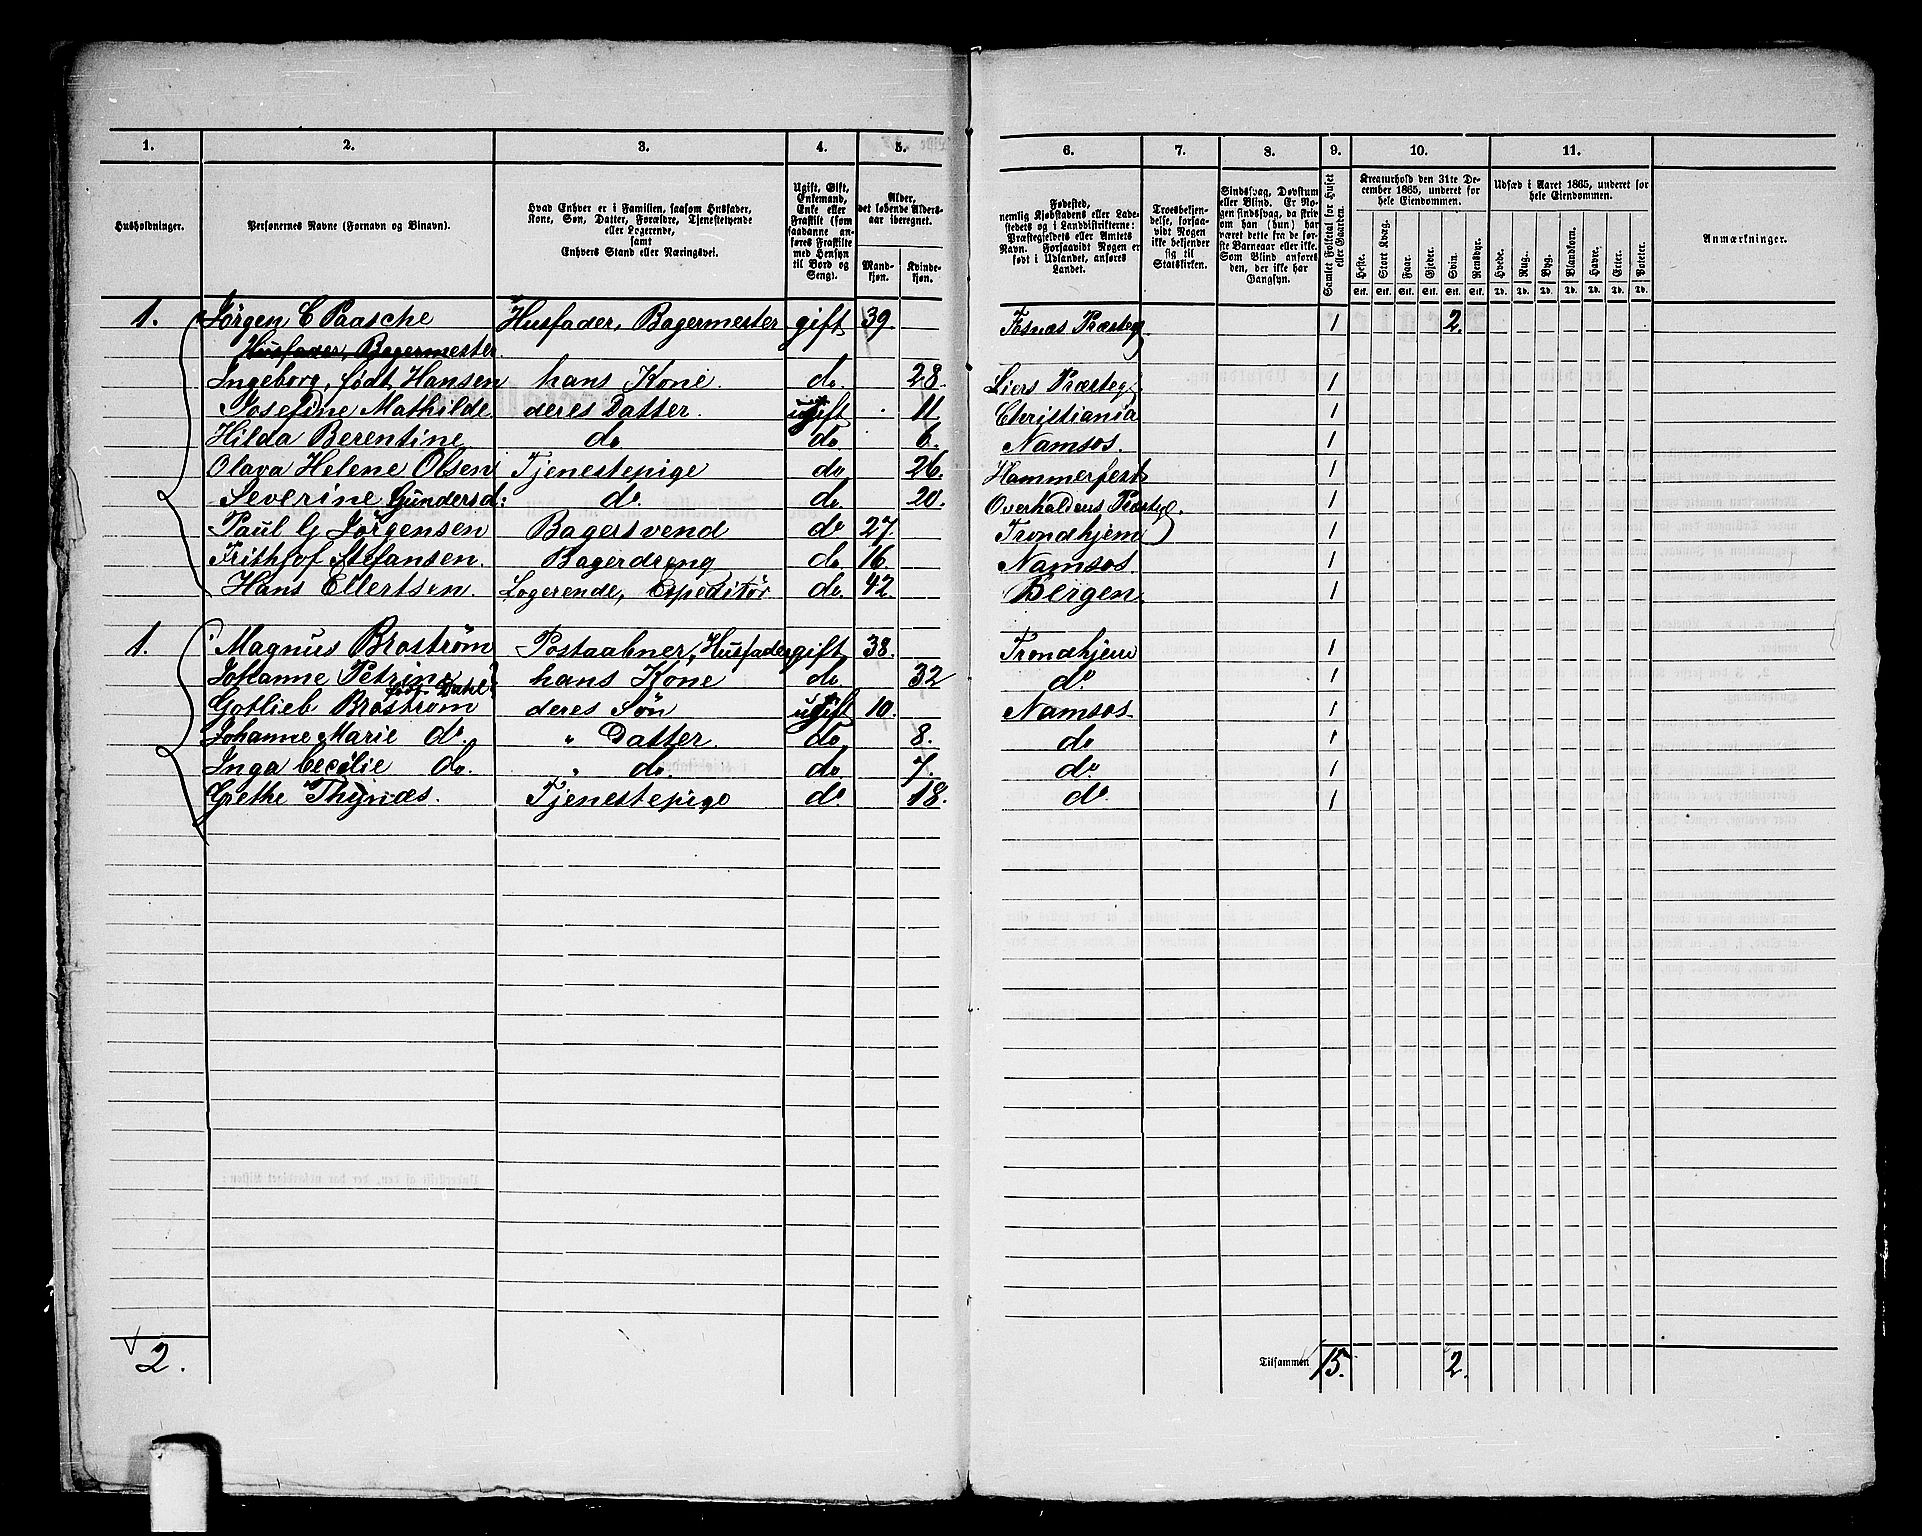 1. 2. 3. 4. 5. 6. 7. 8. 9. 10. 11.
Husholdninger.
Personernes Navne (Fornavn og Binavn).
Hvad Enhver er i Familien, saasom Husfader, Kone, Søn, Datter, Forældre, Tjenestetyende eller Logerende, samt Enhvers Stand eller Næringsvei.
Ugift, Gift, Enkemand, Enke eller Fraskilt (som saadanne anføres Fraskilte med Hensyn til Bord og Seng).
Alder, det løbende Alders-aar iberegnet.
Mand-kjøn. Kvinde-kjøn.
Fødested, nemlig Kjøbstadens eller Ladestedets og i Landdistrikterne: Præstegjeldets eller Amtets Navn. Forsaavidt Nogen er født i Udlandet, anføres Landet.
Troesbekjendelse, forsaavidt Nogen ikke bekjender sig til Statskirken.
Sindssvag, Døvstum eller Blind. Er Nogen sindssvag, da skrives om han (hun) har været dette fra de første Barneaar eller ikke. Som Blind anføres den, der ikke har Gangsyn.
Samlet Folketal for Huset eller Gaarden.
Kreaturhold den 31te December 1865, underet for hele Eiendommen.
Heste. Stort Kvæg. Faar. Gjeder. Svin. Rensdyr.
Stk. Stk. Stk. Stk. Stk. Stk.
Udsæd i Aaret 1865, underet for hele Eiendommen.
Hvede. Rug. Byg. Blandkorn. Havre. Erter. Poteter.
Td. Td. Td. Td. Td. Td. Td.
Anmærkninger.
1. Jørgen C Paasche Husfader, Bagermester gift 39. Fosnæs Præsteg. 1 2.
Husfader, Bagermester.
Ingeborg, født Hansen hans Kone. do. 28. Liers Præsteg. 1
Josefine Mathilde. deres Datter. ugift 11 Christiania 1
Hilda Berentine do do. 6. Namsos. 1
Olava Helene Olsen Tjenestepige do 26. Hammerfest 1
Severine Gundersd: do. do. 20. Overhaldens Præsteg. 1
Paul G Jørgensen Bagersvend do 27. Trondhjem 1
Frithjof Stefansen. Bagerdreng do. 16. Namsos. 1
Hans Ellertsen. Logerende, Expeditør do. 42 Bergen. 1
1. Magnus Broström Postaabner, Husfader gift 38. Trondhjem 1
Johanne Petrine hans Kone do. 32 do. 1
født Dahl.
Gotlieb Broström deres Søn ugift 10. Namsos. 1
Johanne Marie do. " Datter. do 8. do 1
Inga Cecilie do. " do. do. 7. do. 1
Grethe Thynæs. Tjenestepige do 18. do. 1
2. Tilsammen 15. 2.